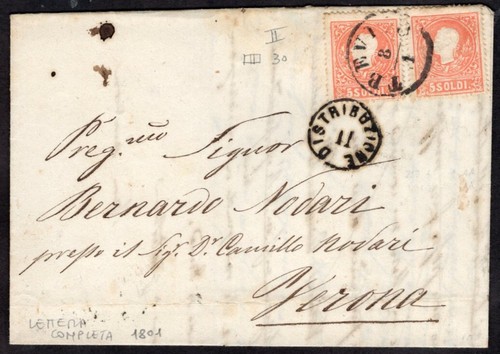 II
III 30
TREVI
8
1
5 SOLDI
5 SOLDI
DISTRIBUZIONE
11
Preg.mo Signor
Bernardo Nodari
presso il Sigr. Dr. Camillo Nodari
Verona
LETTERA
COMPLETA 1801